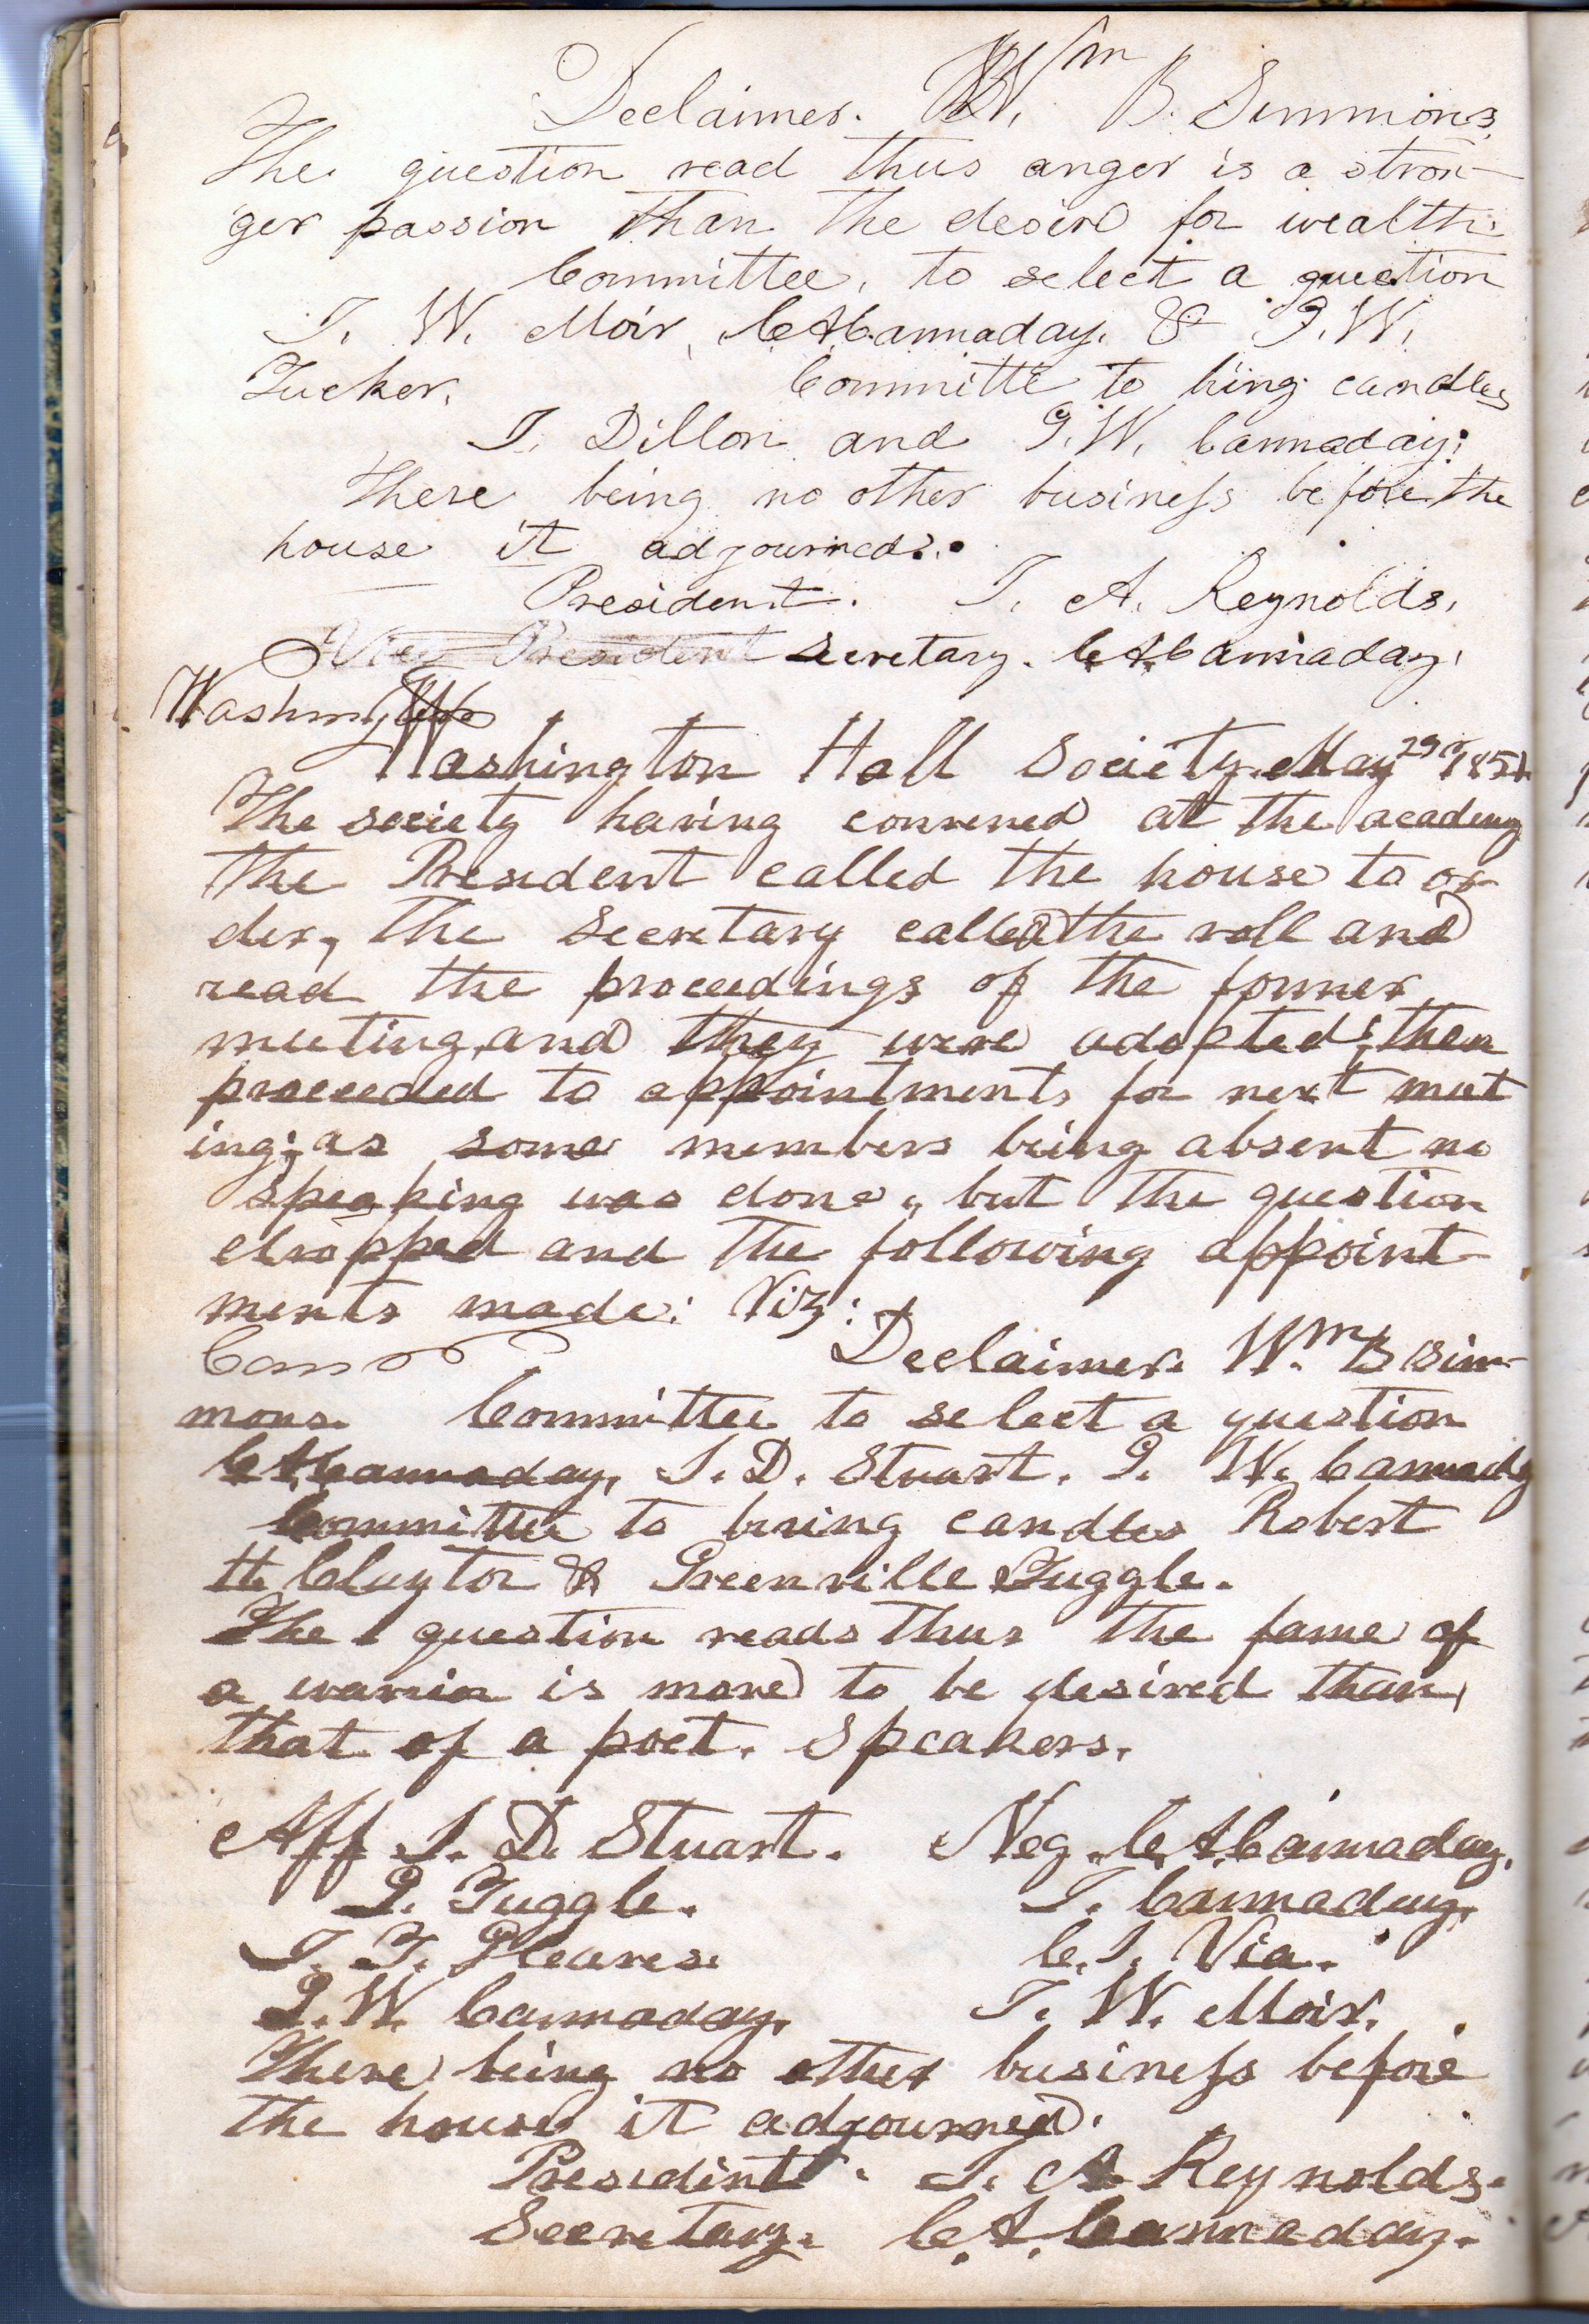 Declaimer. W.m B. Simmons
The question read thus anger is a stron-
ger passion than the desire for wealth.
Committee, to select a question
T. W. Moir, C A Cannaday. & G. W.
Tucker. Committe to bing candles
I. Dillon and G. W. Cannaday:
There being no other business before the
house it adjourned.
President. T. A. Reynolds.
Vice President Secretary. C A Cannaday.
Washing
Washington Hall Society. May 29th
The society having convened at the academy
the President called the house to or-
der, the secretary called the roll and
read the proceedings of the former
meeting, and they were adopted; then
proceeded to appointments for next meet
ing; as some members being absent no
speaking was done, but the question
dropped and the following appoint-
ments made: Viz:
Com Declaimer. W.m B Sim-
mons. Committee to select a question
C A Cannaday, S. D. Stuart. G. W. Cannady
Committee to bring candles Robert
H Clayton & Greenville Tuggle.
The question reads thus the fame of
a warrior is more to be desired than
that of a poet. Speakers.
Aff S. D. Stuart. Neg. C. A. Cannaday.
G. Tuggle. T. Cannaday.
T. T. Cleaves. C. I. Via.
G. W. Cannaday. T. W. Moir.
There being no other business before
the house it adjourned.
President. T. A Reynolds.
Secretary. C. A. Cannaday.